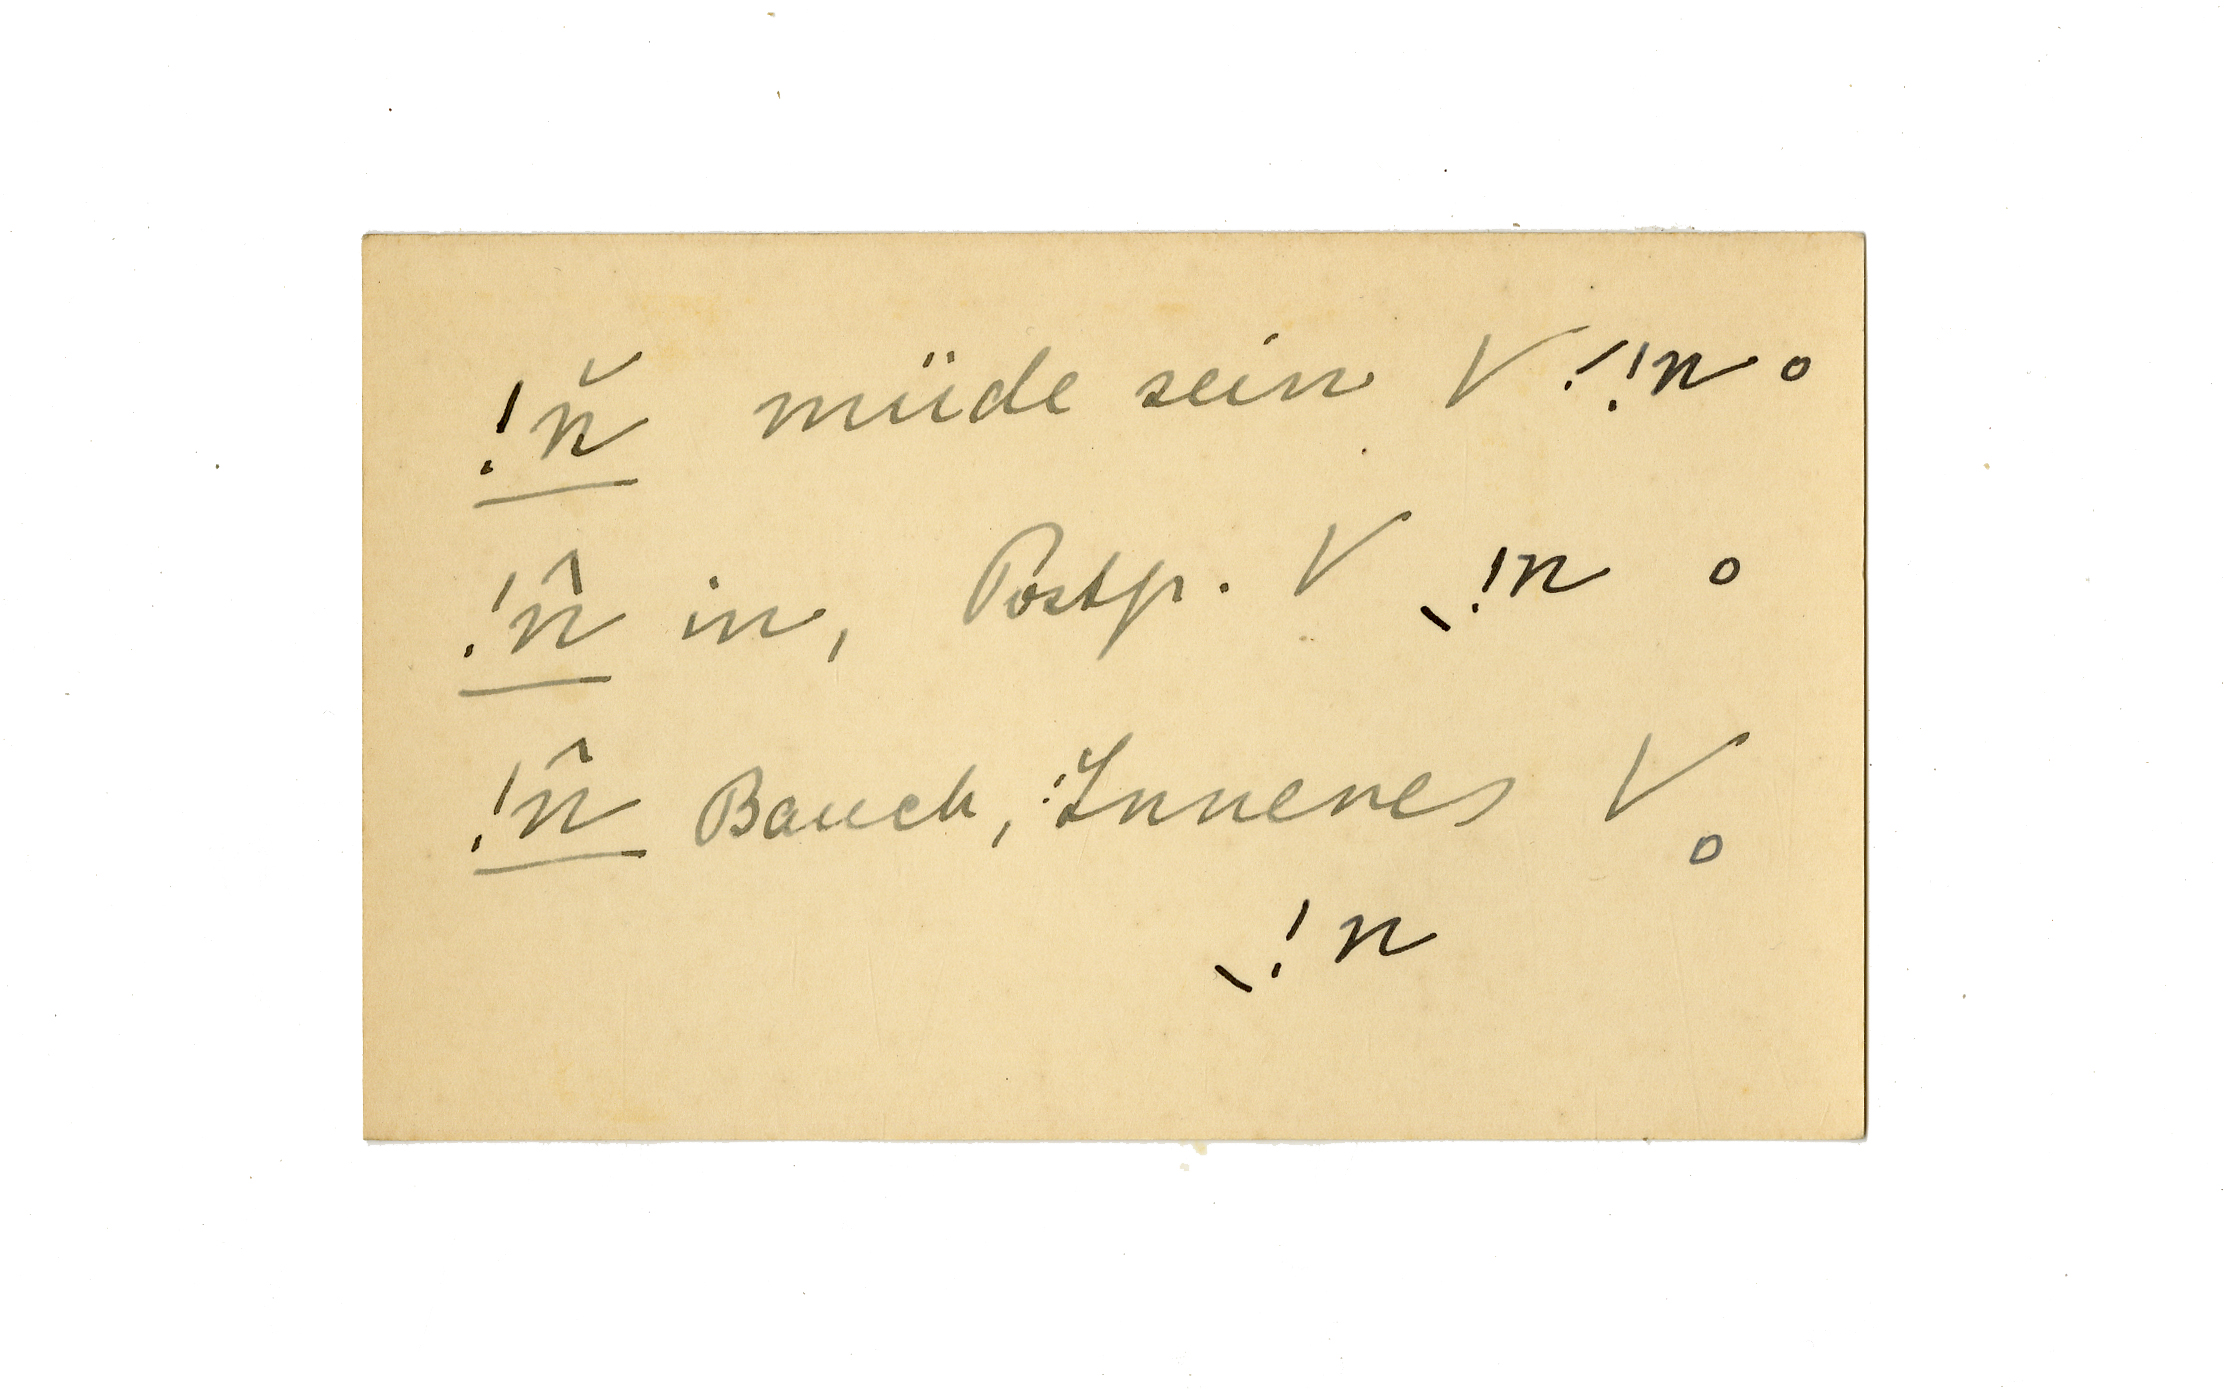 !n̆ müde sein V ˊ!n o
!n̂ in, Postp. V ˎ!n o
!n̂ Bauch, Inneres V o
ˎ!n